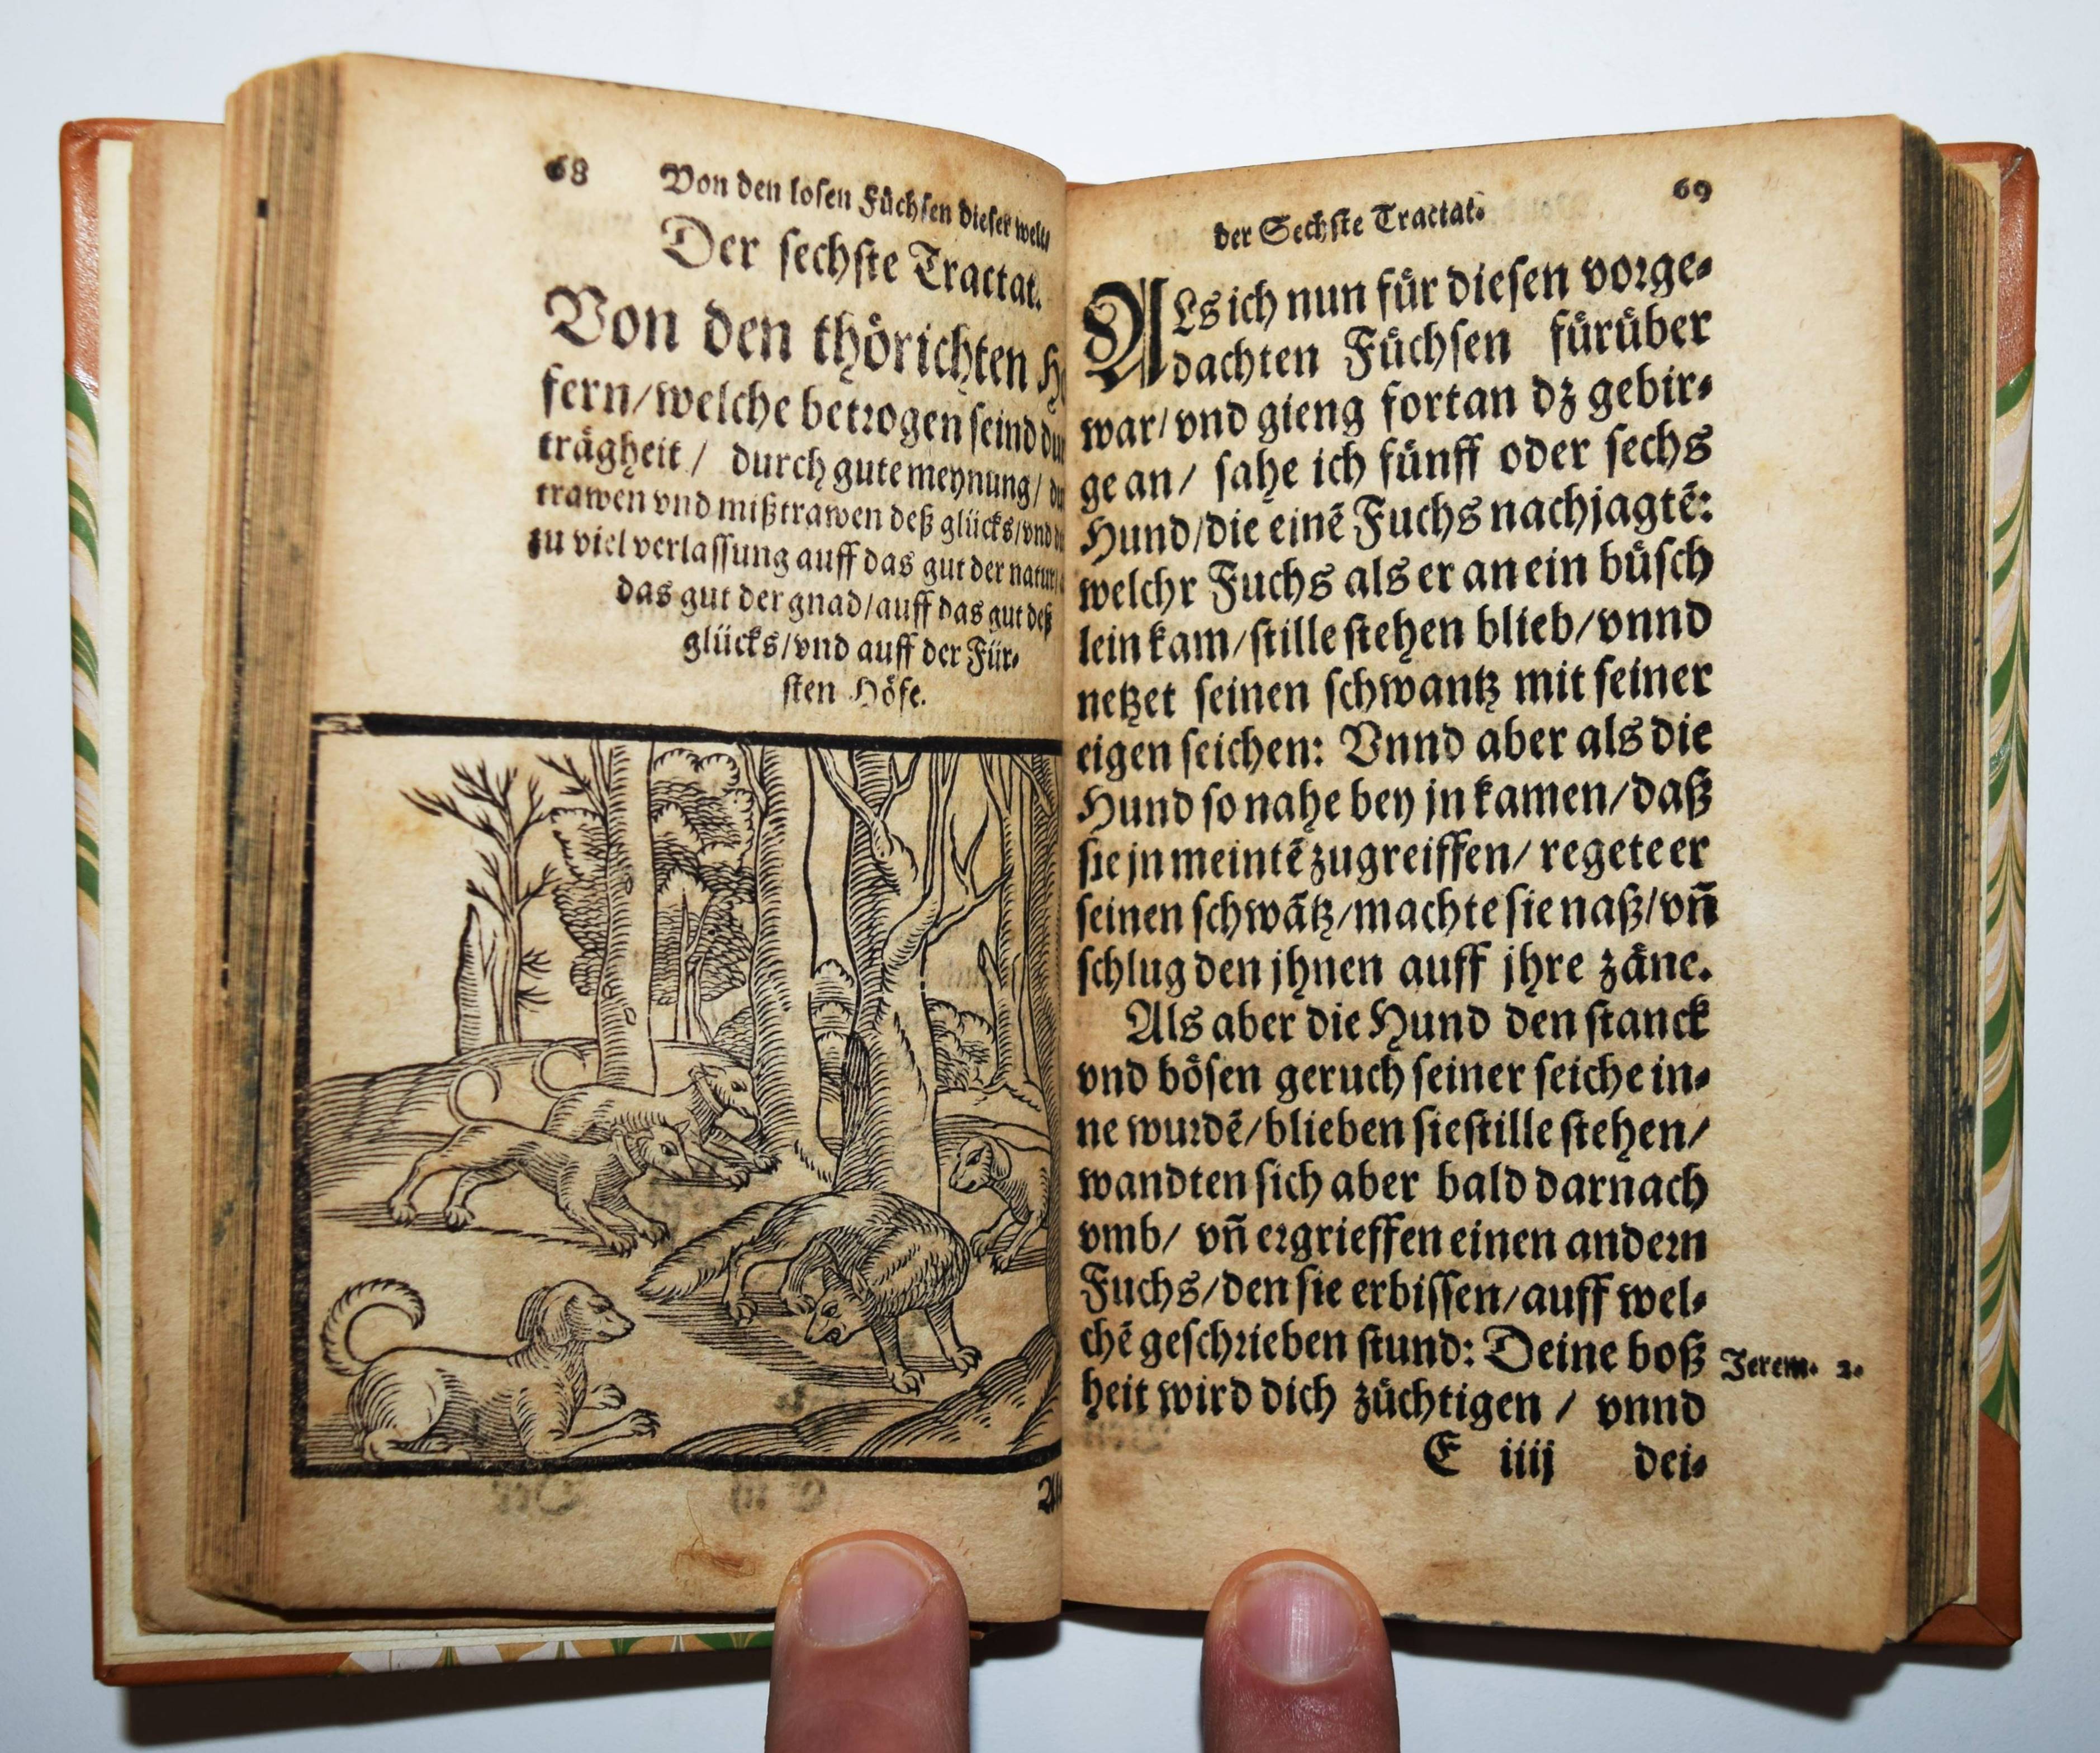 68 Von den losen Füchsen dieser welt
Der sechste Tractat.
Von den thörichten
fern/welche betrogen seind
trägheit/ durch gute meynung/
trawen vnd mißtrawen deß glücks/vnd
zu viel verlassung auff das gut der natur
das gut der gnad/auff das gut deß
glücks/vnd auff der Für-
sten Höfe.
der Sechste Tractat. 69
ALs ich nun für diesen vorge-
dachten Füchsen fürüber
war/vnd gieng fortan dz gebir-
ge an/ sahe ich fünff oder sechs
Hund/die einẽ Fuchs nachjagtẽ:
welchr Fuchs als er an ein büsch
lein kam/stille stehen blieb/vnnd
netzet seinen schwantz mit seiner
eigen seichen: Vnnd aber als die
Hund so nahe bey jn kamen/daß
sie jn meintẽ zugreiffen/ regete er
seinen schwãtz/machte sie naß/vñ
schlug den jhnen auff jhre zäne.
Als aber die Hund den stanck
vnd bösen geruch seiner seiche in-
ne wurdẽ/blieben sie stille stehen/
wandten sich aber bald darnach
vmb/ vñ ergrieffen einen andern
Fuchs/den sie erbissen/auff wel-
chẽ geschrieben stund: Deine boß
heit wird dich züchtigen / vnnd
Jerem. 2.
E iiij dei-